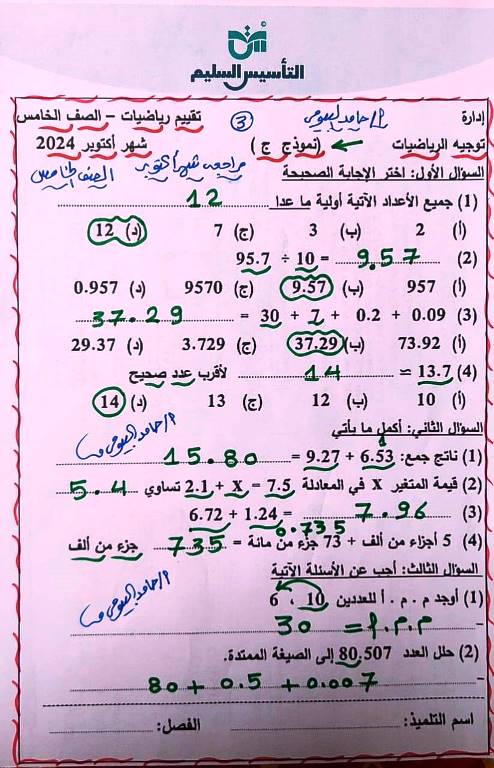 التأسيس السليم
إدارة أ/ حامد البيومي (3) تقييم رياضيات – الصف الخامس
توجيه الرياضيات (نموذج ج) شهر أكتوبر 2024
السؤال الأول: اختر الإجابة الصحيحة مراجعة شهر أكتوبر الصف الخامس
(1) جميع الأعداد الآتية أولية ما عدا 12
(أ) 2 (ب) 3 (ج) 7 (د) 12
(2) 95.7 ÷ 10 = 9.57
(أ) 957 (ب) 9.57 (ج) 9570 (د) 0.957
(3) 37.29 = 30 + 7 + 0.2 + 0.09
(أ) 73.92 (ب) 37.29 (ج) 3.729 (د) 29.37
(4) 13.7 ≈ 14 لأقرب عدد صحيح
(أ) 10 (ب) 12 (ج) 13 (د) 14
السؤال الثاني: أكمل ما يأتي أ/ حامد البيومي
(1) ناتج جمع: 6.53 + 9.27 = 15.80
(2) قيمة المتغير X في المعادلة 7.5 = X + 2.1 تساوي 5.4
(3) 6.72 + 1.24 = 7.96
0.735
(4) 5 أجزاء من ألف + 73 جزء من مائة = 735 جزء من ألف
السؤال الثالث: أجب عن الأسئلة الآتية
(1) أوجد م . م . أ للعددين 10 ، 6 أ/ حامد البيومي
م.م.أ = 30
(2) حلل العدد 80.507 إلى الصيغة الممتدة.
80 + 0.5 + 0.007
اسم التلميذ: الفصل: